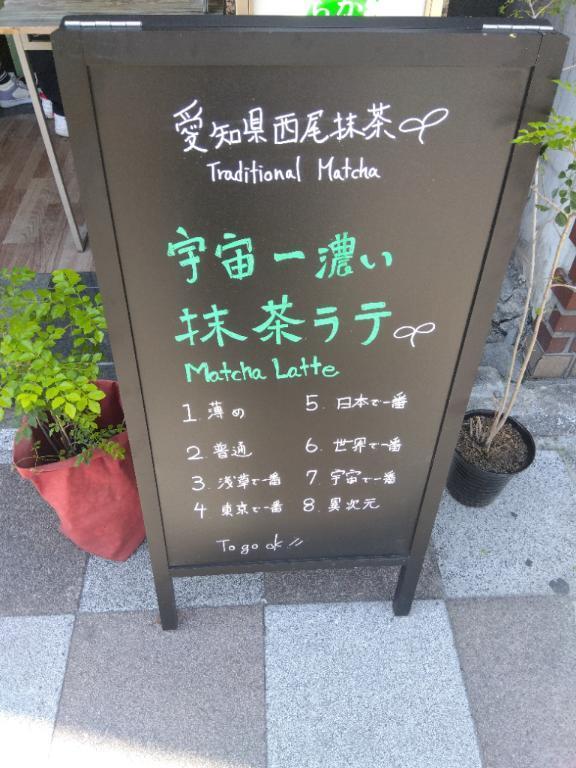 愛知県西尾抹茶
Traditional Matcha
宇宙一濃い
抹茶ラテ
Matcha Latte
1. 薄め
2. 普通
3. 浅草で一番
4 東京で一番
5. 日本で一番
6. 世界で一番
7. 宇宙で一番
8. 異次元
To go ok!!